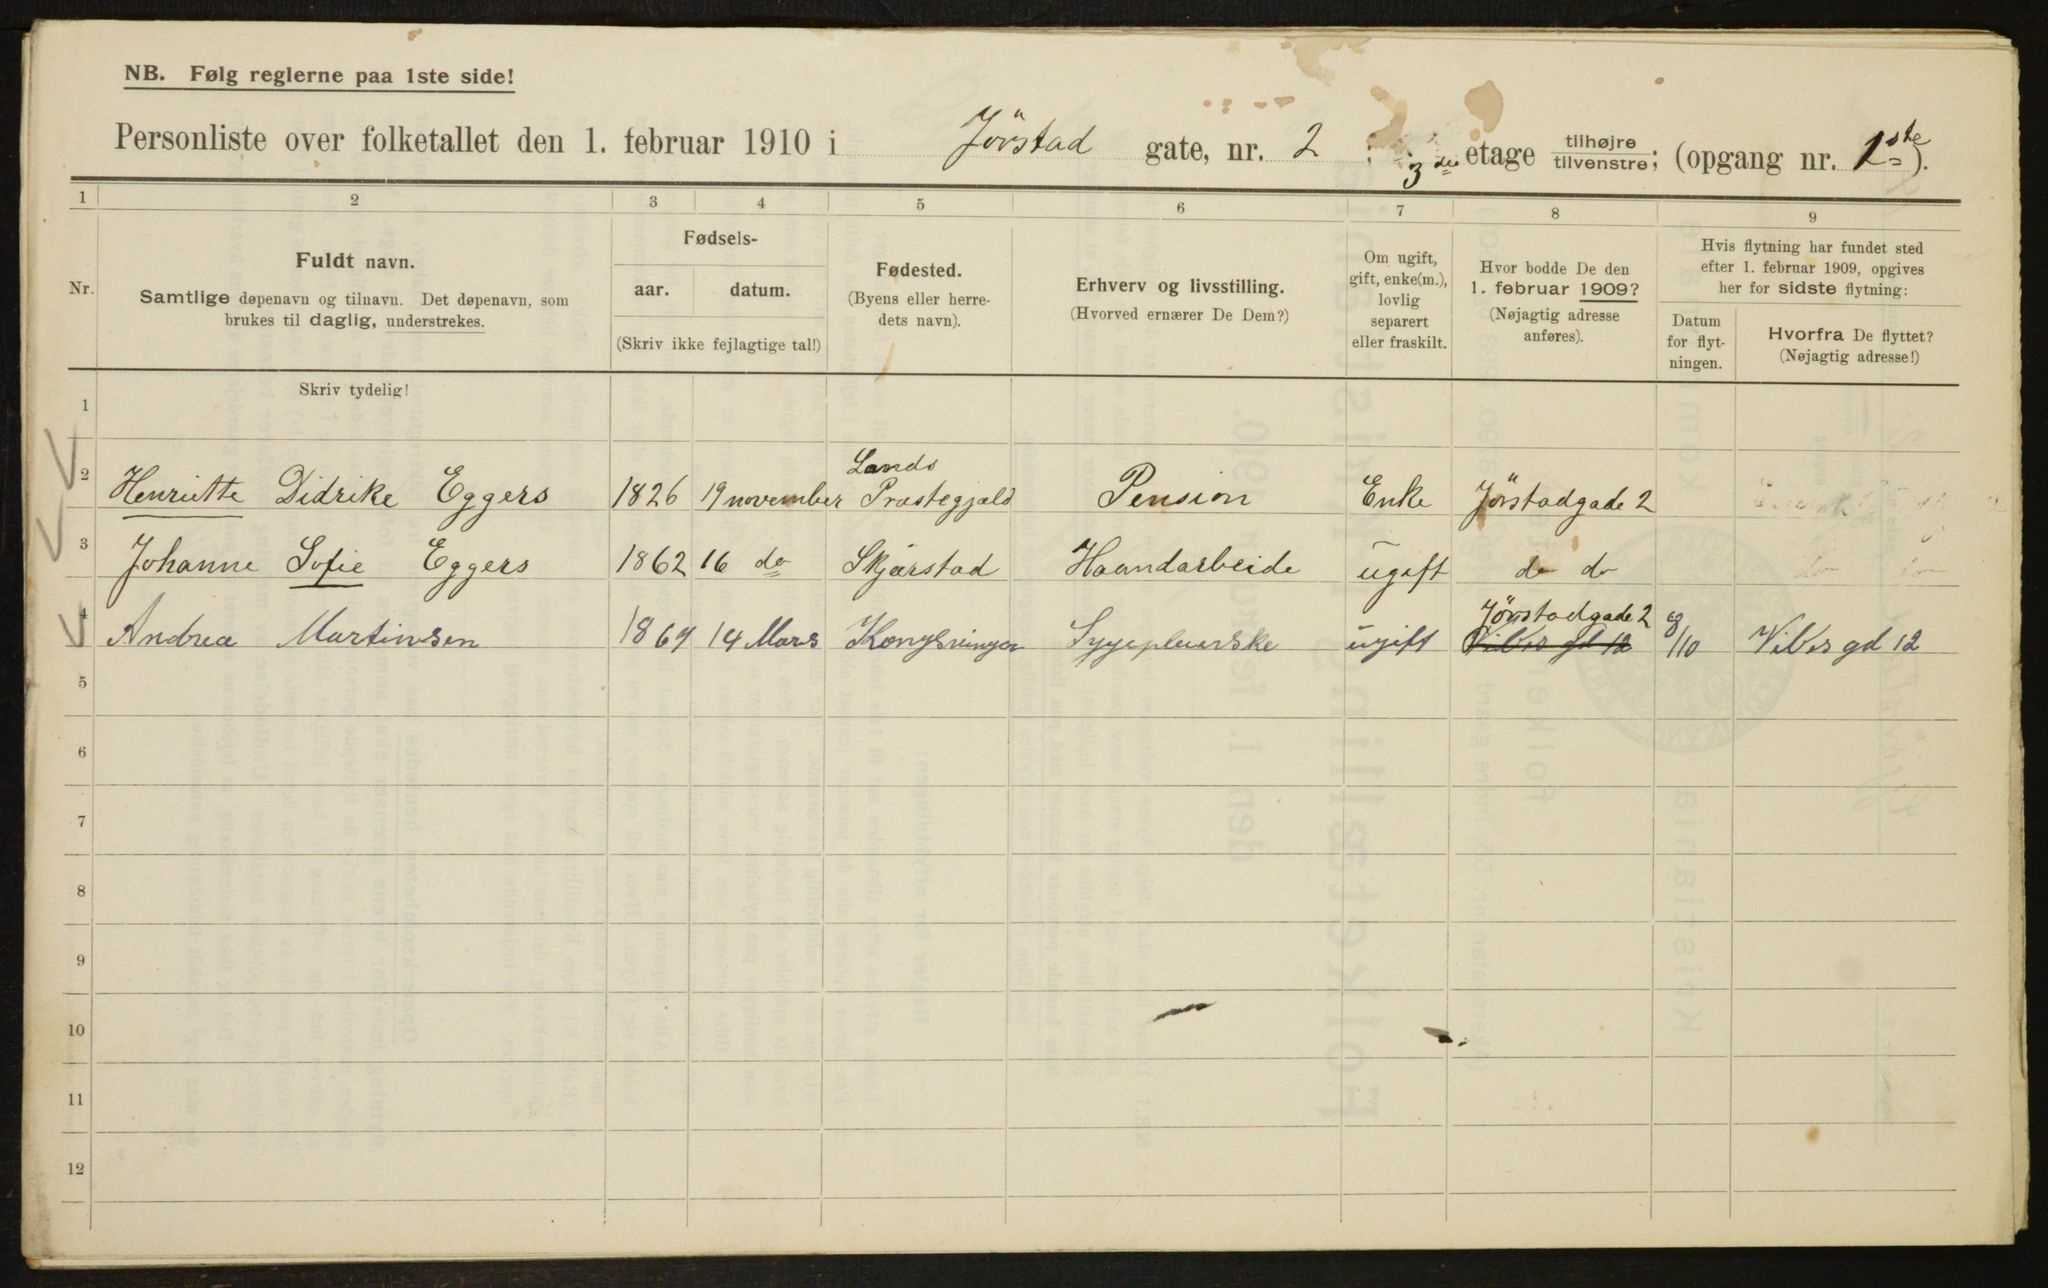 NB. Følg reglerne paa 1ste side!
Personliste over folketallet den 1. februar 1910 i Jörstad gate, nr. 2 ; 3de etage tilhøjre tilvenstre; (opgang nr. 1ste).
1 2 3 4 5 6 7 8 9
Nr.
Fuldt navn.
Samtlige døpenavn og tilnavn. Det døpenavn, som
brukes til daglig, understrekes.
Fødsels-
aar. datum.
(Skriv ikke fejlagtige tal!)
Fødested.
(Byens eller herre-
dets navn).
Erhverv og livsstilling.
(Hvorved ernærer De Dem?)
Om ugift,
gift, enke(m.),
lovlig
separert
eller fraskilt.
Hvor bodde De den
1. februar 1909?
(Nøjagtig adresse
anføres).
Hvis flytning har fundet sted
efter 1. februar 1909, opgives
her for sidste flytning:
Datum
for flyt-
ningen.
Hvorfra De flyttet?
(Nøjagtig adresse!)
Skriv tydelig!
1
Lands
2 Henriette Didrike Eggers 1826 19 november Præstegjæld Pension Enke Jörstadgade 2
3 Johanne Sofie Eggers 1862 16 do Skjærstad Haandarbeide ugift do do
Jörstadgade 2
4 Andrea Martinsen 14 Mars Kongsvinger Sygepleierske ugift Vibes gd 12 8/10 Vibes gd 12
5
6
7
8
9
10
11
12